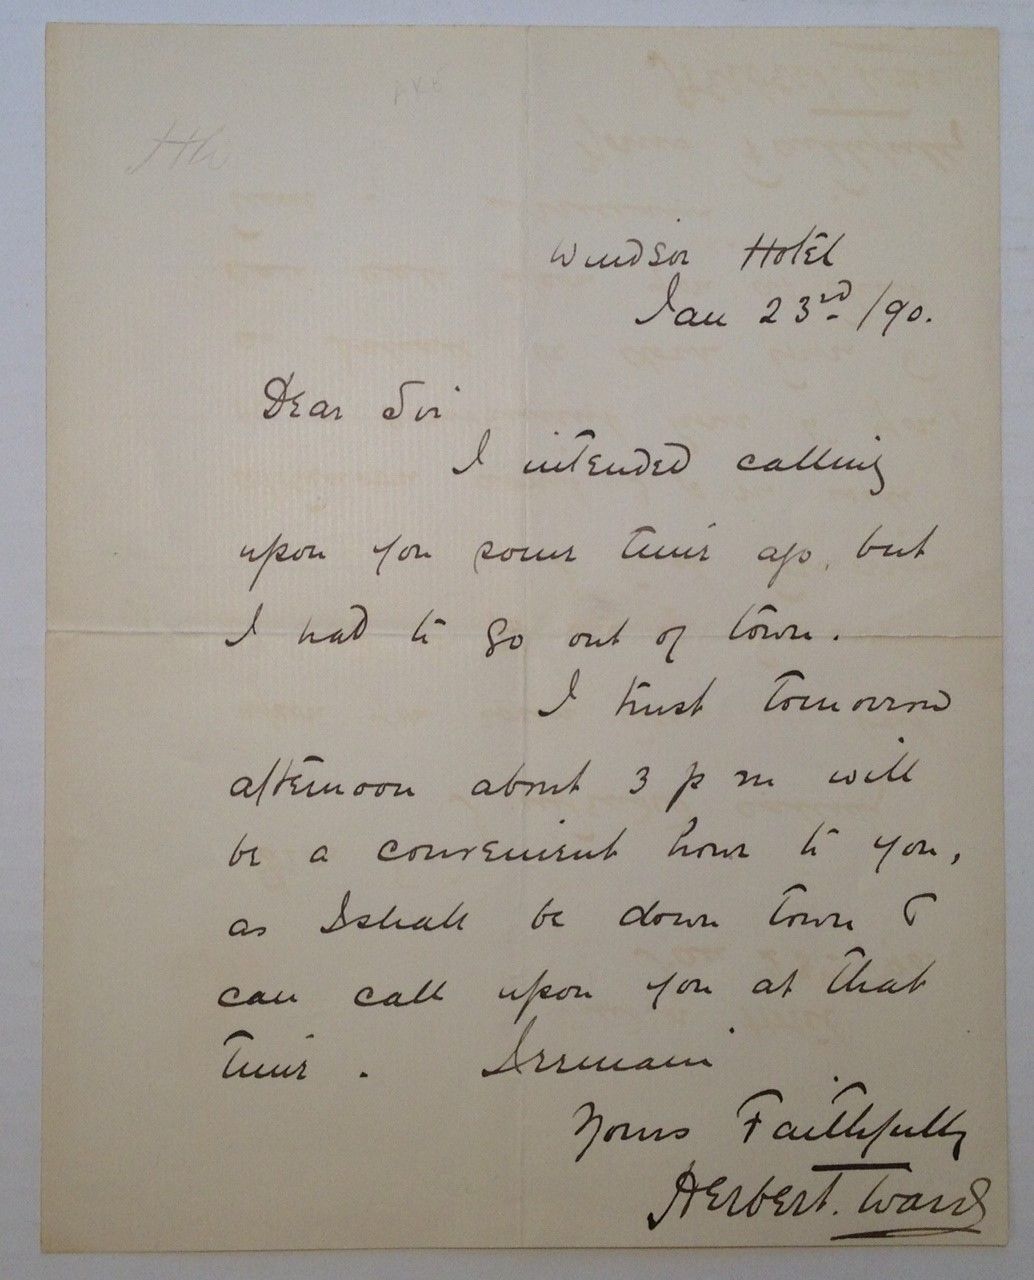 Windsor Hotel
Jan 23rd /90.
Dear Sir
I intended calling
upon you some time ago, but
I had to go out of town.
I trust tomorrow
afternoon about 3 p m will
be a convenient hour to you,
as I shall be down town &
can call upon you at that
time. I remain
Yours Faithfully
Herbert. Ward